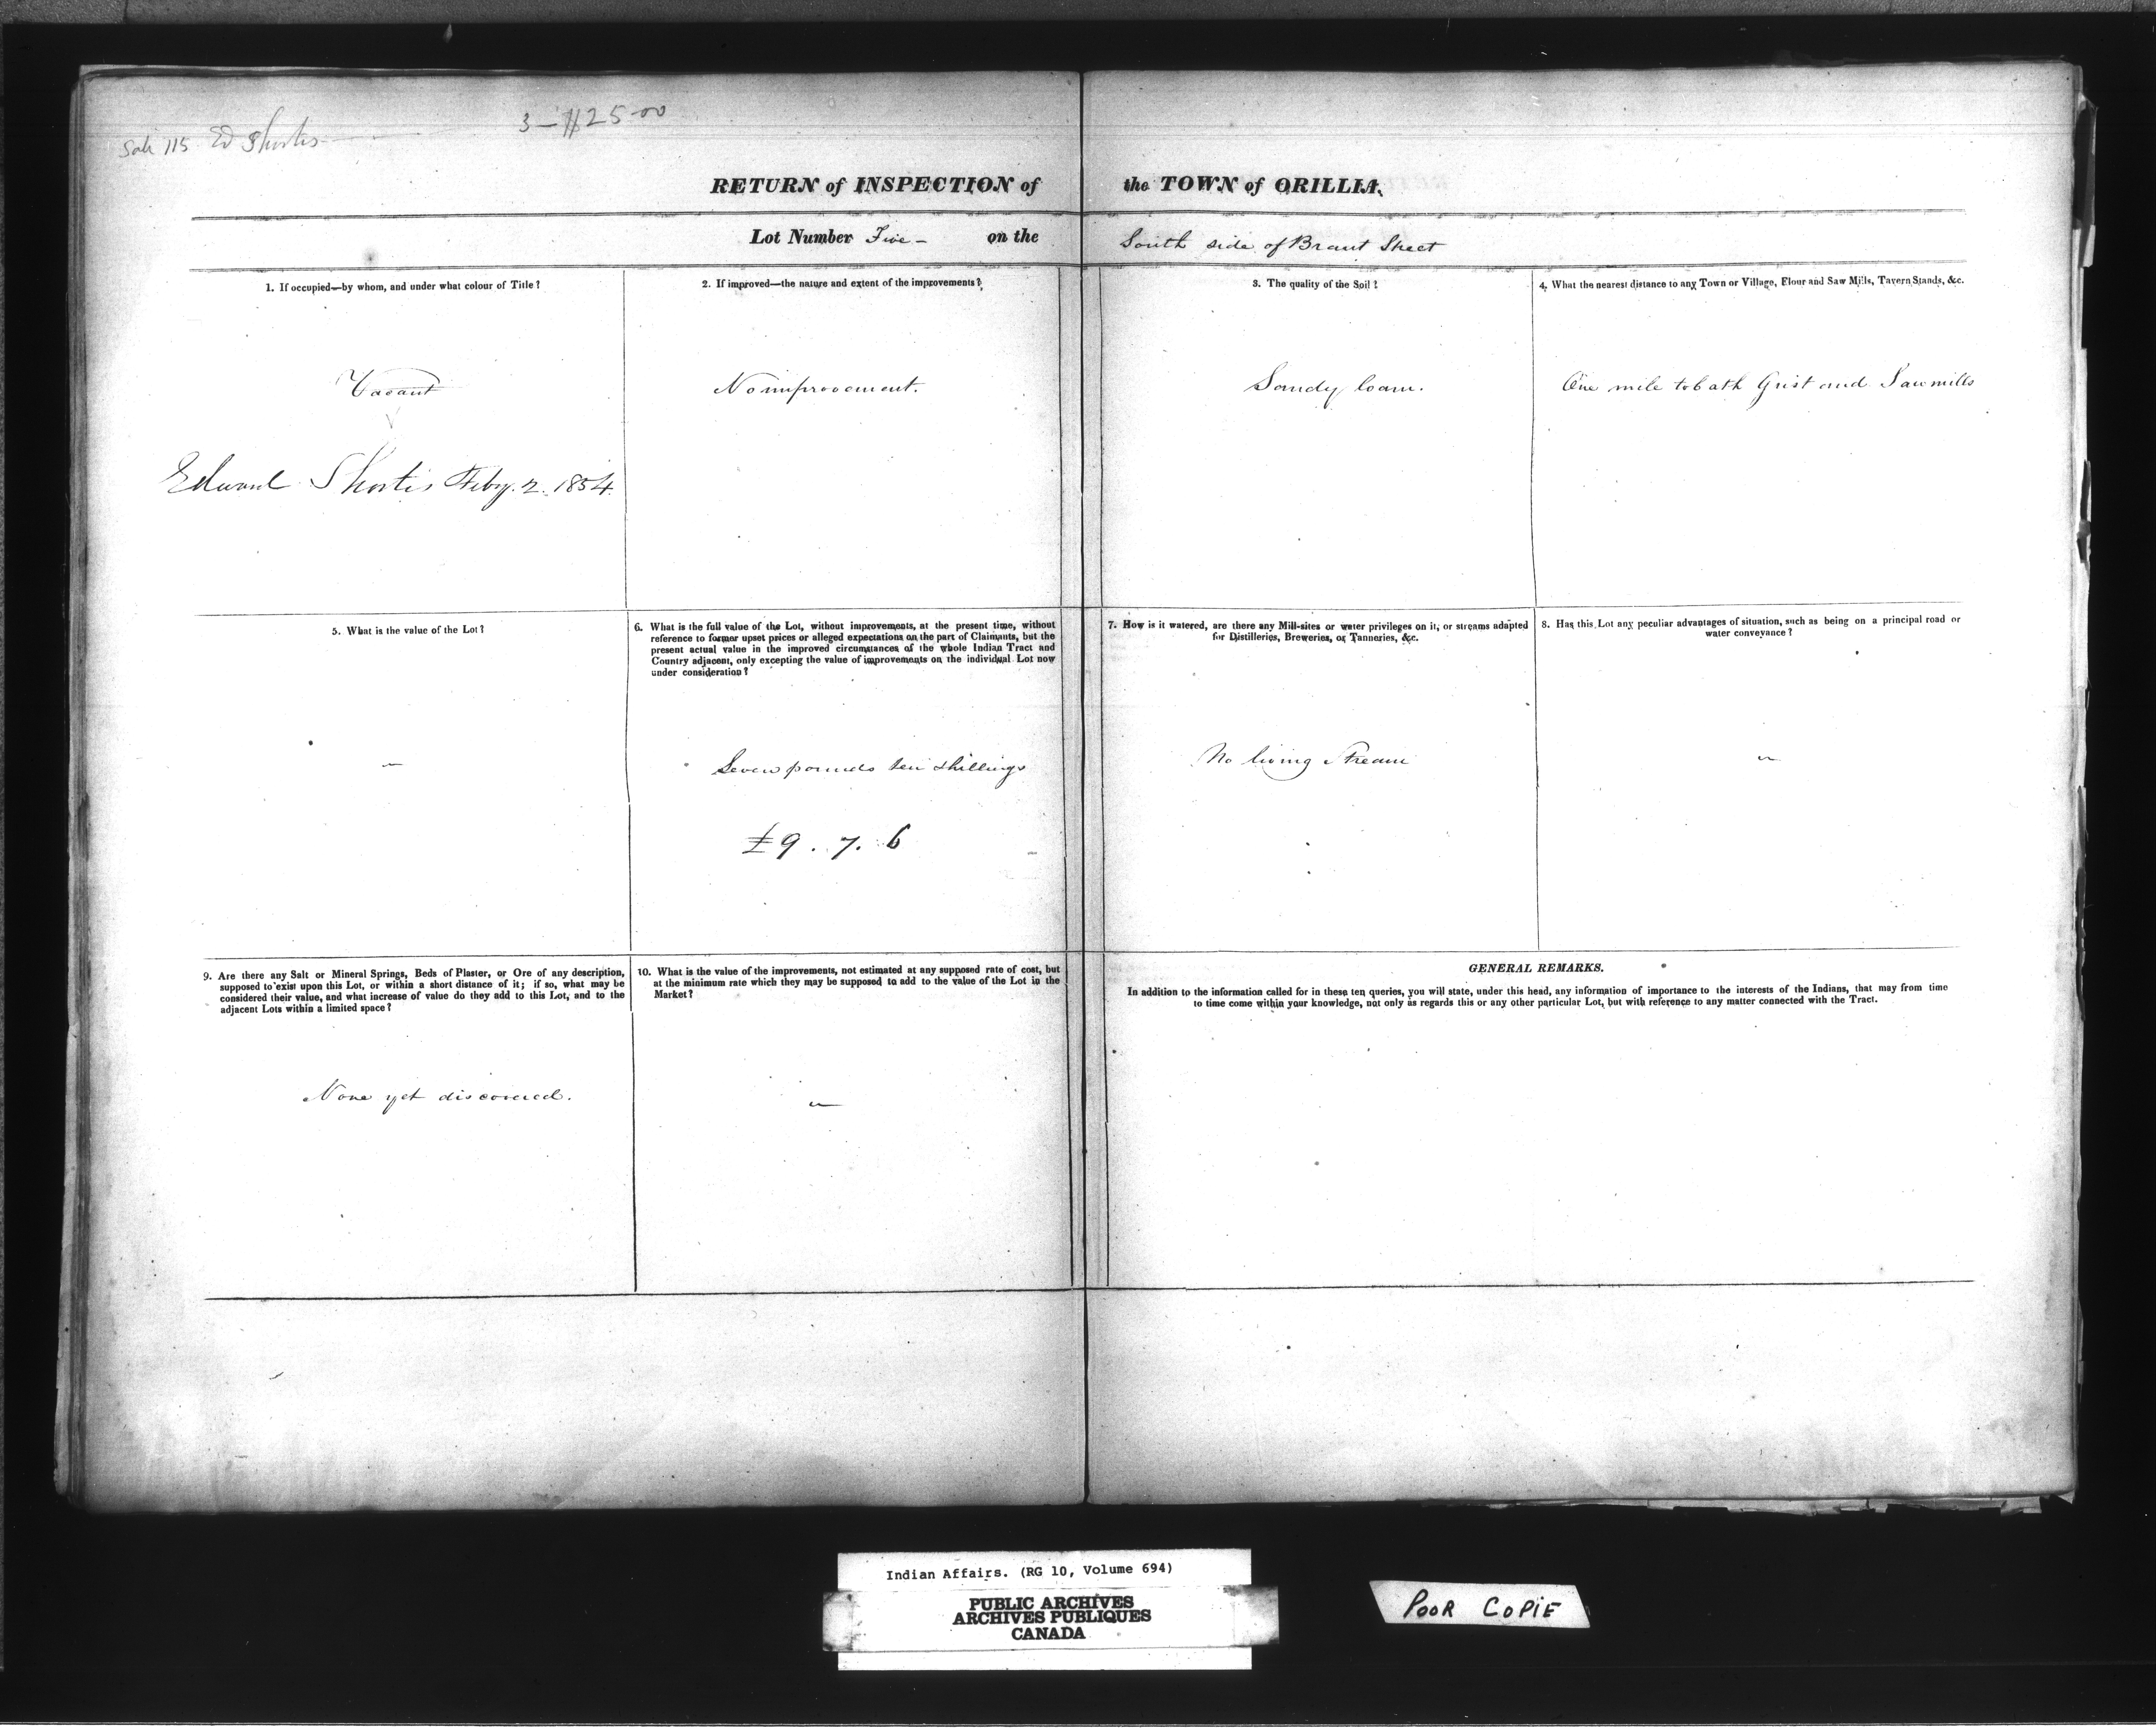 Sale 115 Ed Shortis
3 - $125-00
RETURN of INSPECTION of the TOWN of ORILLIA.
Lot Number Five - on the South side of Brant Street
1. If occupied—by whom, and under what colour of Title?
Vacant
Edward Shortis Feby. 2. 1854.
2. If improved—the nature and extent of the improvements?
No improvement.
3. The quality of the Soil?
Sandy loam.
4. What the nearest distance to any Town or Village, Flour and Saw Mills, Tavern Stands, &c.
One mile to both Grist and Sawmills
5. What is the value of the Lot?
"
6. What is the full value of the Lot, without improvements, at the present time, without
reference to former upset prices or alleged expectations on the part of Claimants, but the
present actual value in the improved circumstances of the whole Indian Tract and
Country adjacent, only excepting the value of improvements on the individual Lot now
under consideration?
Seven pounds ten shillings
£9. 7. 6
7. How is it watered, are there any Mill-sites or water privileges on it, or streams adapted
for Distilleries, Breweries, or Tanneries, &c.
No living Stream
8. Has this Lot any peculiar advantages of situation, such as being on a principal road or
water conveyance?
"
9. Are there any Salt or Mineral Springs, Beds of Plaster, or Ore of any description,
supposed to exist upon this Lot, or within a short distance of it; if so, what may be
considered their value, and what increase of value do they add to this Lot, and to the
adjacent Lots within a limited space?
None yet discovered.
10. What is the value of the improvements, not estimated at any supposed rate of cost, but
at the minimum rate which they may be supposed to add to the value of the Lot in the
Market?
"
GENERAL REMARKS.
In addition to the information called for in these ten queries, you will state, under this head, any information of importance to the interests of the Indians, that may from time
to time come within your knowledge, not only as regards this or any other particular Lot, but with reference to any matter connected with the Tract.
Indian Affairs. (RG 10, Volume 694)
PUBLIC ARCHIVES
ARCHIVES PUBLIQUES
CANADA
POOR COPIE